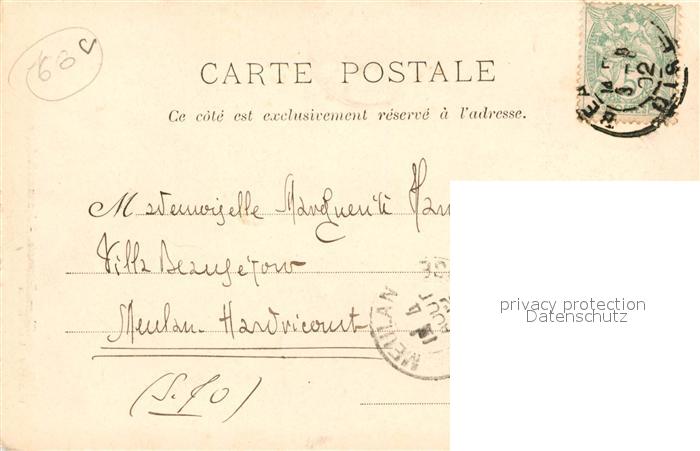 CARTE POSTALE
Ce côté est exclusivement réservé à l'adresse.
Mademoiselle Marguerite
Villa Beauséjour
Meulan-Hardricourt
(S. & O)
MEULAN
4
AOUT
privacy protection
Datenschutz